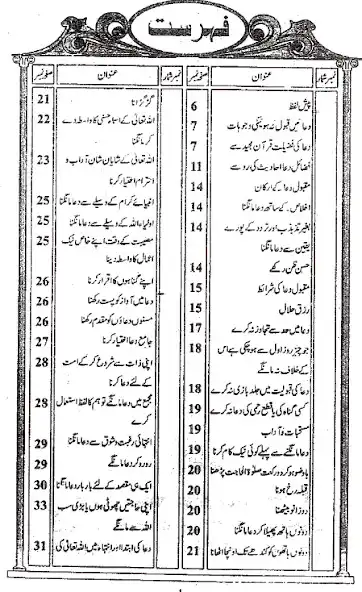 فہرست
نمبر شمار عنوان صفحہ نمبر
پیش لفظ 6
دعائیں قبول نہ ہونیکی وجوہات 7
دعا کی فضیلت قرآن مجید سے 7
فضائل دعا احادیث کی رو سے 11
مقبول دعا کے ارکان 14
اخلاص کے ساتھ دعا مانگنا 14
بغیر تذبذب اور تردد کے پورے 14
یقین سے دعا مانگنا
حسن ظن رکھے 14
مقبول دعا کی شرائط 15
رزق حلال 15
دعا میں حد سے تجاوز نہ کرے 17
جو چیز روز اول سے ہو چکی ہے اس 18
کے خلاف نہ مانگے
دعا کی قبولیت میں جلد بازی نہ کرے 18
کسی گناہ کی یا قطع رحمی کی دعا نہ کرے 19
مستحبات و آداب 19
دعا مانگنے سے پہلے کوئی نیک کام کرنا 19
باوضو ہو کر دو رکعت صلوۃ الحاجت پڑھنا 20
قبلہ رخ ہونا 20
دو زانو بیٹھنا 20
دونوں ہاتھ پھیلا کر دعا مانگنا 20
دونوں ہاتھوں کو کندھے تک اونچا اٹھانا 21
نمبر شمار عنوان صفحہ نمبر
گڑگڑانا 21
اللہ تعالیٰ کے اسماء حسنیٰ کا واسطہ دے 22
کر مانگنا
اللہ تعالیٰ کے شایان شان آداب و 23
احترام اختیار کرنا
انبیائے کرام کے وسیلے سے دعا مانگنا 25
اولیاء اللہ کے وسیلے سے دعا مانگنا 25
مصیبت کے وقت اپنے خاص نیک 25
اعمال کا واسطہ دینا
اپنے گناہوں کا اقرار کرنا 26
دعا میں آواز کو پست رکھنا 26
مسنون دعاؤں کو مقدم رکھنا 26
جامع دعا اختیار کرنا 27
اپنی ذات سے شروع کر کے امت 28
کے لئے دعا کرنا
مجمع میں دعا مانگے تو ہم کا لفظ استعمال 28
کرے
انتہائی رغبت و شوق سے دعا مانگنا 29
رو رو کر دعا مانگے 29
ایک ہی مقصد کے لئے بار بار دعا مانگنا 30
اپنی حاجتیں چھوٹی ہوں یا بڑی سب 33
اللہ سے مانگے
دعا کی ابتدا اور انتہاء میں اللہ تعالیٰ کی 31